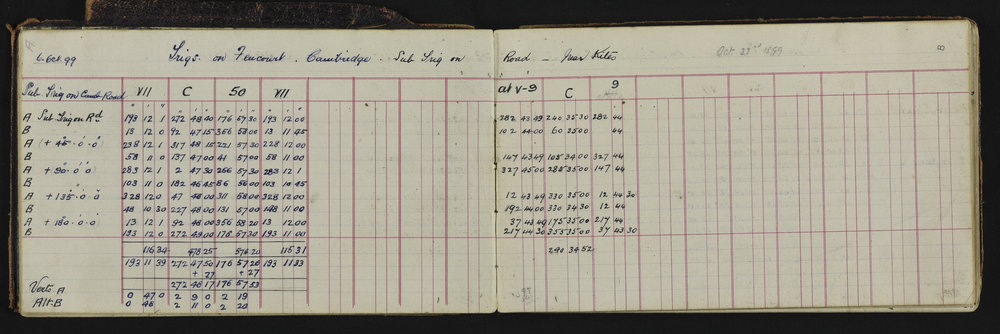 6.Oct.99 Trigs. on Fencourt. Cambridge. Sub Trig on Road - Near Kites Oct 23rd 1899 8
Sub Trig on Camb Road VII C 50 VII at V-9 C 9
A Sub Trig on Rd 193 12 1 272 48 40 176 57 30 193 12 00 282 43 49 240 35 30 282 44
B 13 12 0 92 47 15 356 58 00 13 11 45 102 44 00 60 35 00 44
A (+ 45° 0 0) 238 12 1 317 48 15 221 57 30 228 12 00
B 58 11 0 137 47 00 41 57 00 58 11 00 147 43 49 105 34 00 327 44
A + 90° 0 0) 283 12 1 2 47 30 266 57 30 283 12 1 327 45 00 285 35 00 147 44
B 103 11 0 182 46 45 86 56 00 103 10 45
A + 135° 0 0 328 12 0 47 48 00 311 58 00 328 12 00 12 43 49 330 35 00 12 44 30
B 48 10 30 227 48 00 131 57 00 148 11 00 192 44 00 330 34 30 12 44
A + 180° 0 0 13 12 1 92 48 00 356 58 20 13 12 00 37 43 49 175 35 00 217 44
B 193 12 0 272 49 00 176 57 30 193 11 00 217 44 30 355 35 00 37 43 30
116 34 478 25 574 20 115 31 290 34 52
193 11 39 272 47 50 176 57 26 193 11 33
+ 27 + 27
272 48 17 176 57 53
Verts A 0 47 0 2 9 0 2 19
Alt B 0 46 2 11 0 2 20